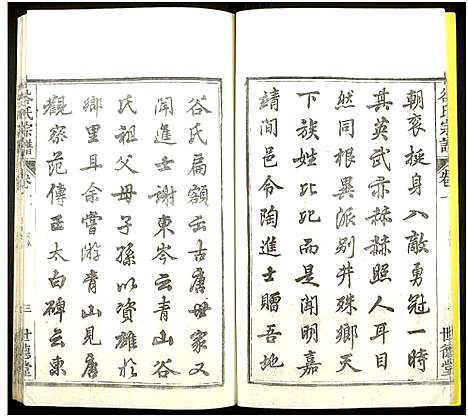 谷氏宗譜
卷一
世德堂
朝衮挺身入敵勇冠一時
其英武亦赫赫照人耳目
然同根異派別井殊鄉天
下族姓比比而是聞明嘉
靖間邑令陶進士贈吾地
谷氏扁額云古唐世家又
聞進士谢東岑云青山谷
氏祖父母子孫以資雄於
鄉里且余嘗游青山見唐
觀察范傳正太白碑云東
谷氏宗譜
三
世德堂